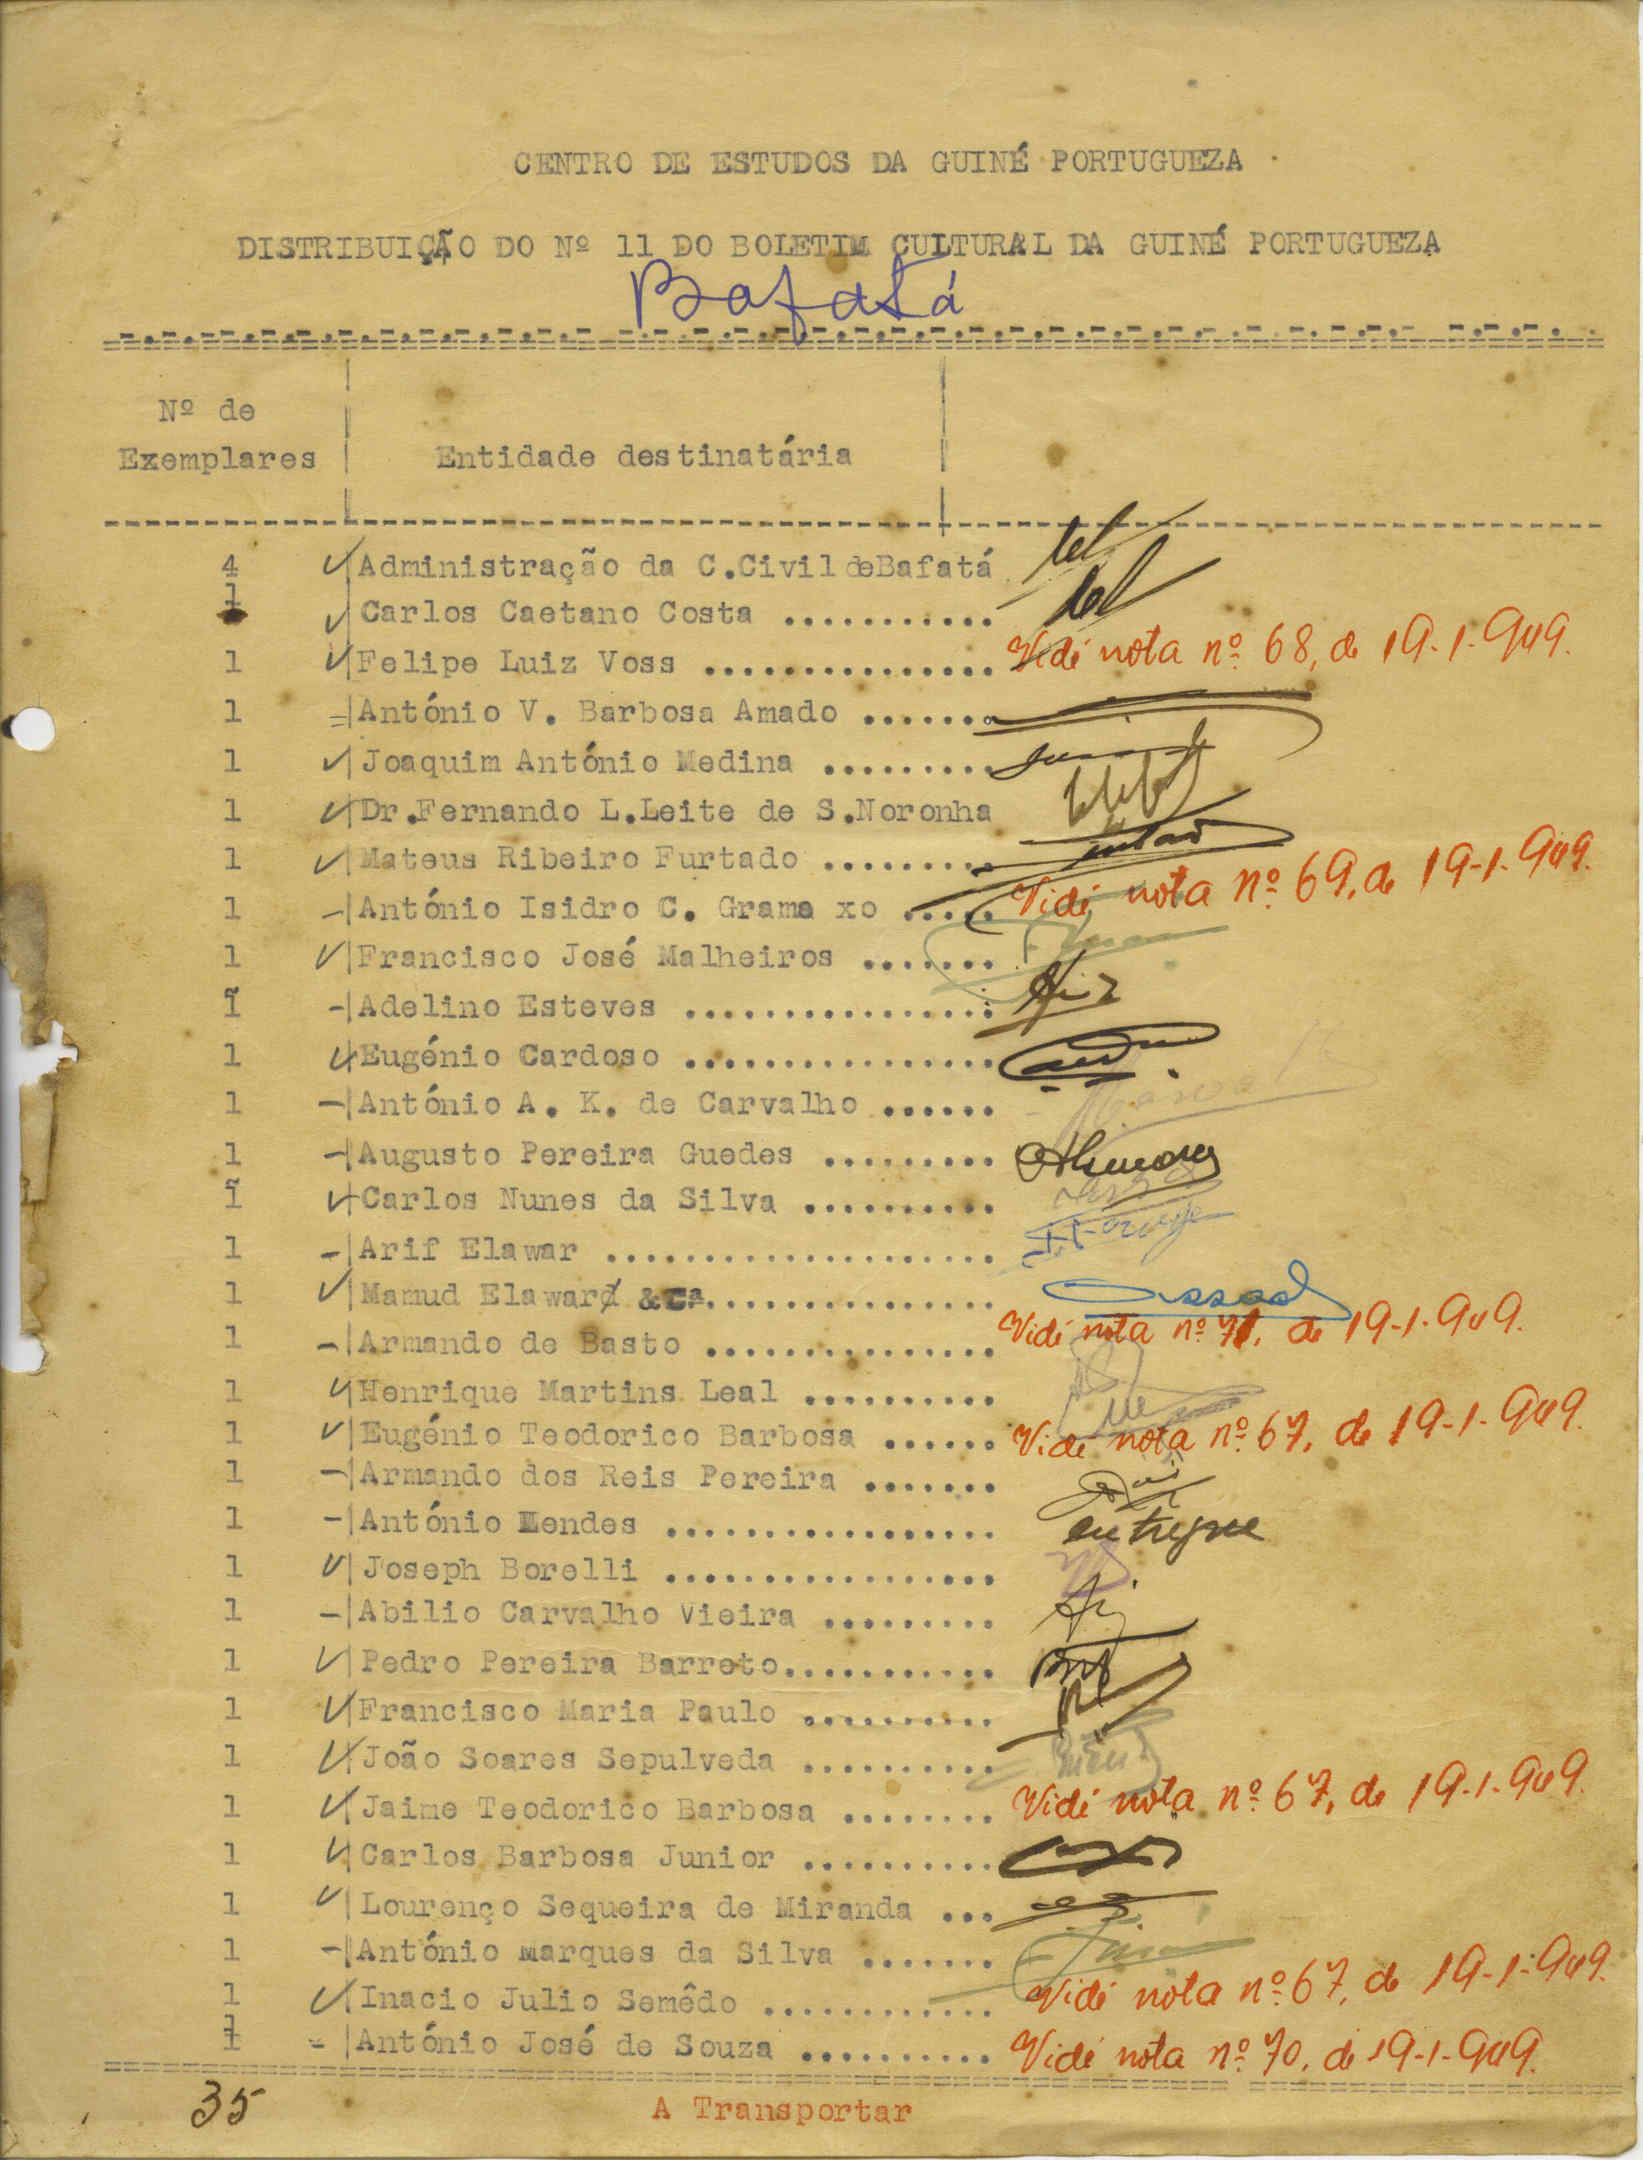 CENTRO DE ESTUDOS DA GUINÉ PORTUGUEZA
DISTRIBUIÇÃO DO Nº 11 DO BOLETIM CULTURAL DA GUINÉ PORTUGUEZA
Bafatá
Nº de
Exemplares Entidade destinatária
4 Administração da C.Civil de Bafatá
1 Carlos Caetano Costa ...........
1 Felipe Luiz Voss ............... Vidé nota nº 68, de 19-1-949.
1 António V. Barbosa Amado .......
1 Joaquim António Medina .........
1 Dr.Fernando L.Leite de S.Noronha
1 Mateus Ribeiro Furtado .........
1 António Isidro C. Grama xo ..... Vidé nota nº 69, de 19-1-949.
1 Francisco José Malheiros .......
1 Adelino Esteves ................
1 Eugénio Cardoso ................
1 António A. K. de Carvalho ......
1 Augusto Pereira Guedes .........
1 Carlos Nunes da Silva ..........
1 Arif Elawar ....................
1 Mamud Elawar & Cª............... Assad
1 Armando de Basto ............... Vidé nota nº 71, de 19-1-949.
1 Henrique Martins Leal ..........
1 Eugénio Teodorico Barbosa ...... Vidé nota nº 67, de 19-1-949.
1 Armando dos Reis Pereira .......
1 António Mendes ................. entregue
1 Joseph Borelli .................
1 Abilio Carvalho Vieira .........
1 Pedro Pereira Barreto...........
1 Francisco Maria Paulo ..........
1 João Soares Sepulveda ..........
1 Jaime Teodorico Barbosa ........ Vidé nota nº 67, de 19-1-949.
1 Carlos Barbosa Junior ..........
1 Lourenço Sequeira de Miranda ...
1 António Marques da Silva .......
1 Inacio Julio Semêdo ............ Vidé nota nº 67, de 19-1-949.
1 António José de Souza .......... Vidé nota nº 70, de 19-1-949.
35 A Transportar